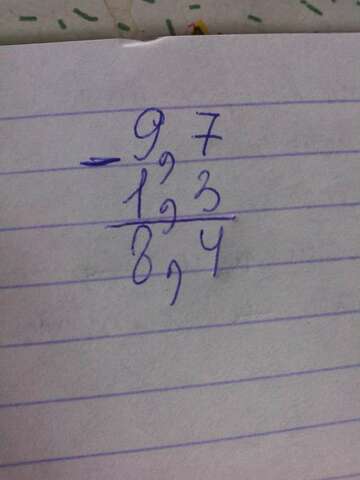 9,7
-
1,3
8,4